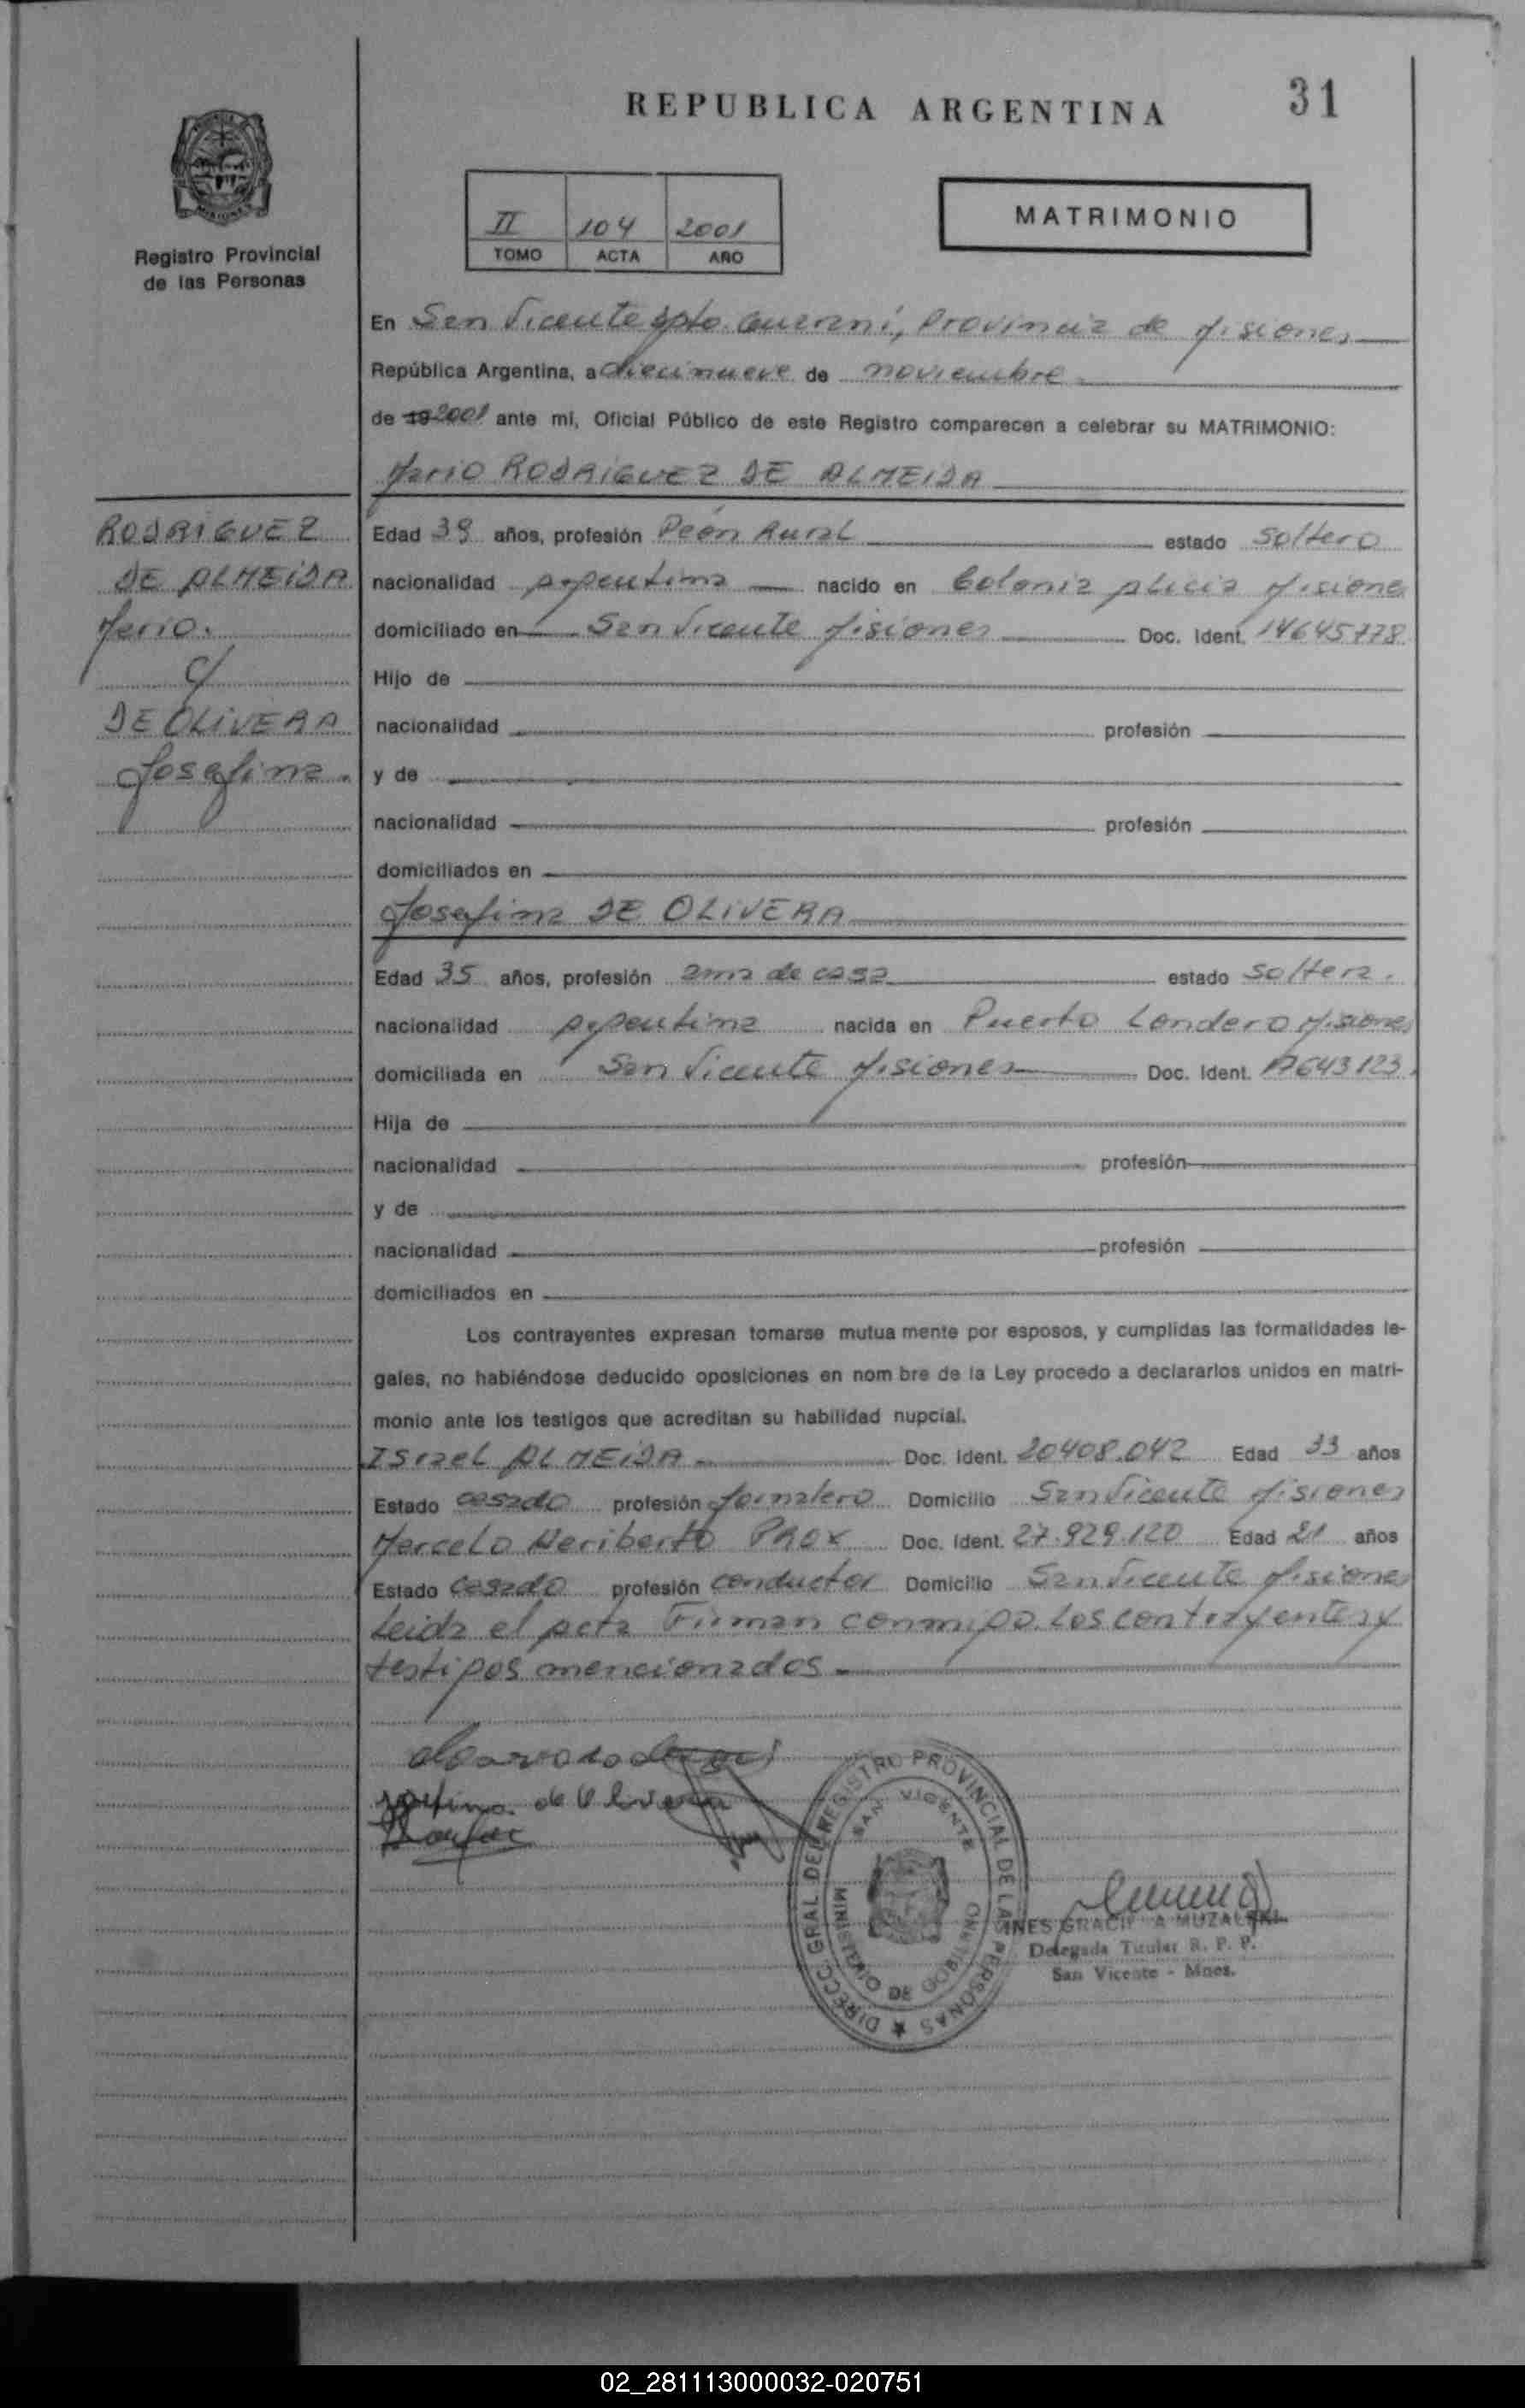 REPUBLICA ARGENTINA
31
Registro Provincial
de las Personas
II 104 2001
TOMO ACTA AÑO
MATRIMONIO
En San Vicente dpto. Guaraní, Provincia de Misiones
República Argentina, a diecinueve de noviembre
de 19 2001 ante mi, Oficial Público de este Registro comparecen a celebrar su MATRIMONIO:
Mario RODRIGUEZ DE ALMEIDA
RODRIGUEZ
DE ALMEIDA
Mario.
c/
DE OLIVERA
Josefina.
Edad 39 años, profesión Peón Rural estado Soltero
nacionalidad Argentina nacido en Colonia Alicia Misiones
domiciliado en San Vicente Misiones Doc. Ident. 14645778
Hijo de
nacionalidad profesión
y de
nacionalidad profesión
domiciliados en
Josefina DE OLIVERA
Edad 35 años, profesión ama de casa estado Soltera.
nacionalidad Argentina nacida en Puerto Londero Misiones
domiciliada en San Vicente Misiones Doc. Ident. 17643123
Hija de
nacionalidad profesión
y de
nacionalidad profesión
domiciliados en
Los contrayentes expresan tomarse mutua mente por esposos, y cumplidas las formalidades le-
gales, no habiéndose deducido oposiciones en nom bre de la Ley procedo a declararlos unidos en matri-
monio ante los testigos que acreditan su habilidad nupcial.
Israel ALMEIDA Doc. Ident. 20408.042 Edad 33 años
Estado casado profesión Jornalero Domicilio San Vicente Misiones
Marcelo Heriberto PROX Doc. Ident. 27.929.120 Edad 21 años
Estado Casado profesión conductor Domicilio San Vicente Misiones
Leida el acta Firman conmigo los contrayentes y
testigos mencionados
Josefina de Olivera
DIRECC. GRAL. DEL REGISTRO PROVINCIAL DE LAS PERSONAS
SAN VICENTE
MINISTERIO DE GOBIERNO
INES GRACIELA MUZALSKI
Delegada Titular R. P. P.
San Vicente - Mnes.
02_281113000032-020751